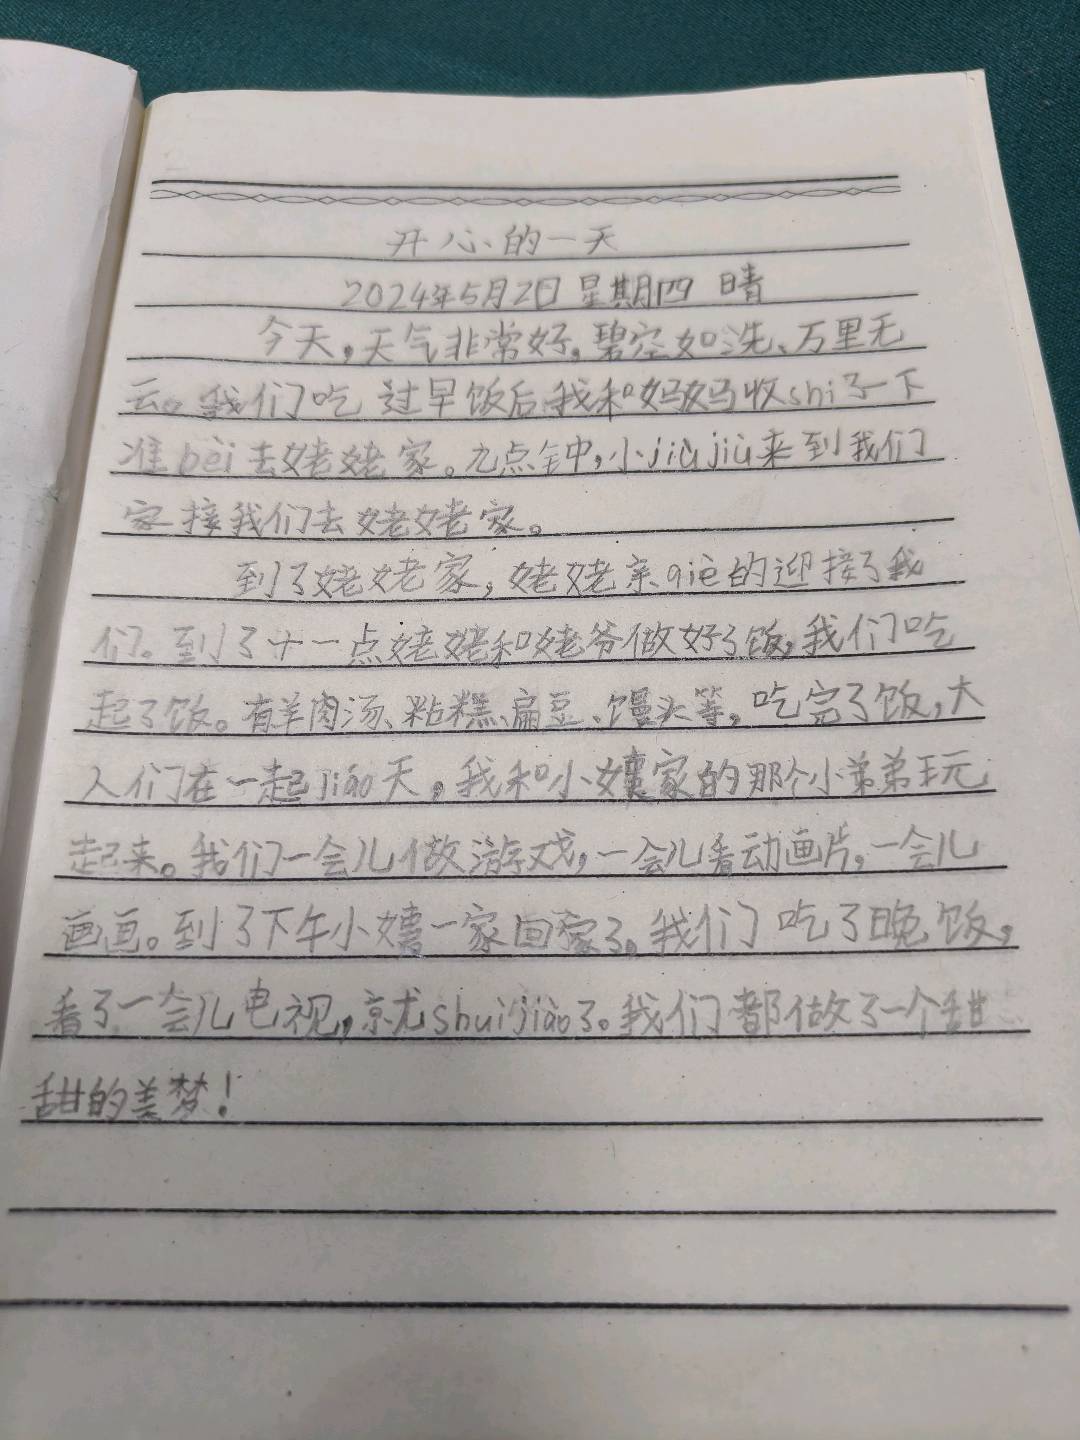 开心的一天
2024年5月2日 星期四 晴
今天,天气非常好,碧空如洗、万里无
云。我们吃过早饭后,我和妈妈收shi了一下
准bèi去姥姥家。九点钟,小jiùjiu来到我们
家接我们去姥姥家。
到了姥姥家,姥姥亲qiè的迎接了我
们。到了十一点姥姥和姥爷做好了饭,我们吃
起了饭。有羊肉汤、粘糕、扁豆、馒头等,吃完了饭,大
人们在一起liáo天,我和小家的那个小弟弟玩
起来。我们一会儿做游戏,一会儿看动画片,一会儿
画画。到了下午小一家回家了。我们吃了晚饭,
看了一会儿电视,就shuìjiào了。我们都做了一个甜
甜的美梦!